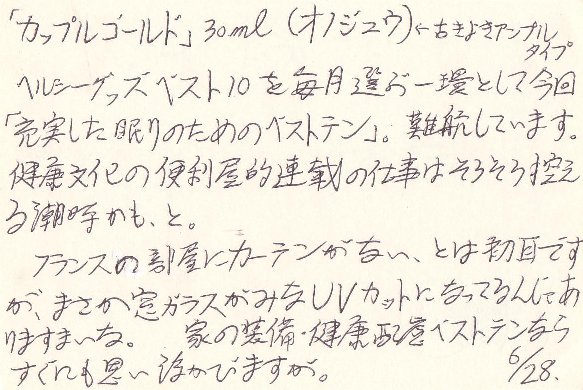 「カップルゴールド」30ml(オノジュウ)←古きよきアンプル
タイプ
ヘルシーグッズベスト10を毎月選ぶ一環として今回
「充実した眠りのためのベストテン」。難航しています。
健康文化の便利屋的連載の仕事はそろそろ控え
る潮時かも、と。
フランスの部屋にカーテンがない、とは初耳です
が、まさか窓ガラスがみなUVカットになってるんじゃあ
りますまいな。 家の装備・健康配慮ベストテンなら
すぐにも思い浮かびますが。 6/28.